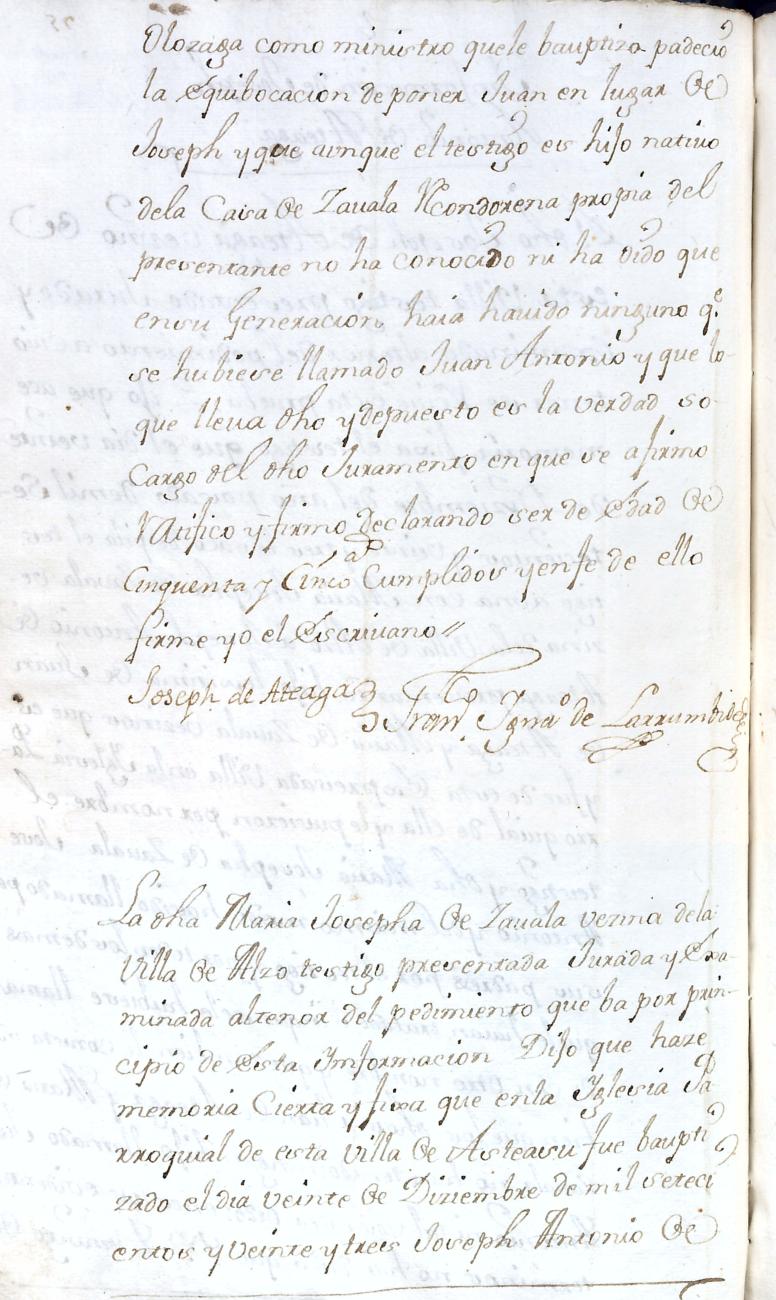 Olozaga como ministro quele bauptizo padecio
la Equibocacion de poner Juan en lugar de
Joseph y que aunque el testigo es hijo nativo
dela Casa de Zavala propia del
presentante no ha conocido ni ha oido que
ensu Generacion haia havido ninguno q.e
se hubiese llamado Juan Antonio y que lo
que lleva dho y depuesto es la verdad so
Cargo del dho Juramento en que se afirmo
Ratifico y firmo declarando ser de Edad de
Cinquenta y Cinco a.s Cumplidos y enfe de ello
firme yo el Escrivano //
Joseph de Ateaga Igna.o de Larrumbide
La dha Maria Josepha de Zavala vezina dela
Villa de Alzo testigo presentada Jurada y Exa-
minada altenor del pedimiento que ba por prin-
cipio de Esta Informacion Dijo que haze
memoria Cierta y fixa que enla Iglesia Pa
rroquial de esta villa de Asteasu fue baupti
zado el dia veinte de Diziembre de mil seteci
entos y veinte y tres Joseph Antonio de